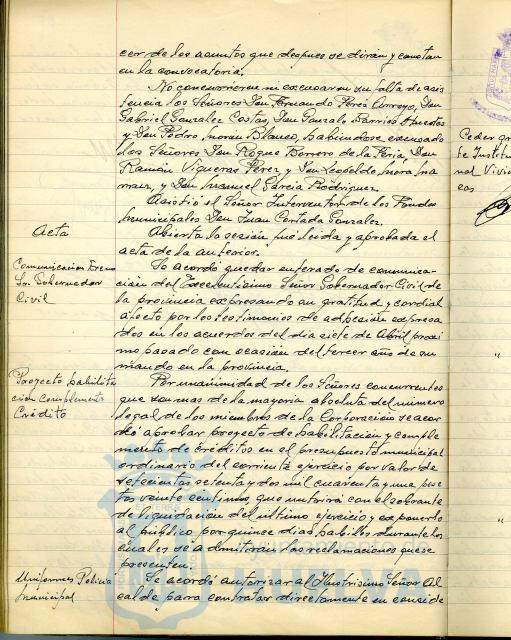 cer de los asuntos que despues se dirán y constan
en la convocatoria.
No concurrieron ni excusaron su falta de asis
tencia los Señores Don Fernando Pérez Arroyo, Don
Gabriel Gonzalez Costas, Don Gonzalo Barrios Bustos
y Don Pedro Morón Blanco, habiéndose excusado
los Señores Don Roque Borrero de la Feria, Don
Ramón Vigueras Pérez y Don Leopoldo Mora Ma
y Don Manuel García Rodriguez.
Asistió el Señor Interventor de los Fondos
Municipales Don Juan Cortada Gonzalez.
Acta
Abierta la sesión fué leida y aprobada el
acta de la anterior.
Comunicacion Excmo
Sr. Gobernador
Civil
Se acordó quedar enterado de comunica-
ción del Excelentísimo Señor Gobernador Civil de
la provincia expresando su gratitud y cordial
afecto por los testimonios de adhesión expresa
dos en los acuerdos del dia siete de Abril proxi
mo pasado con ocasión del tercer año de su
mando en la provincia.
Proyecto habilita
ción complemento
Crédito
Por unanimidad de los Señores concurrentes
que son mas de la mayoría absoluta del número
legal de los miembros de la Corporación se acor
dó aprobar proyecto de habilitación y comple
mento de créditos en el presupuesto municipal
ordinario del corriente ejercicio por valor de
setecientas setenta y dos mil cuarenta y una pese
tas veinte centimos, que nutrirá con el sobrante
de liquidación del último ejercicio y exponerlo
al público por quince dias habiles durante los
cuales se admitirán las reclamaciones que se
presenten.
Uniformes Policia
Municipal
Se acordó autorizar al Ilustrisimo Señor Al
calde para contratar directamente en conside
Ceder gra
te Institu
nal Vivie
eas
"
"